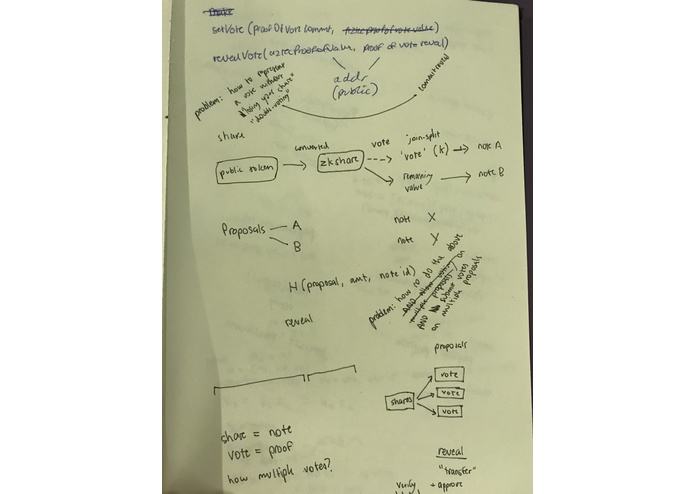 setVote (proofOfVoteCommit, aztecProofOfVoteValue)
revealVote (aztecProofOfValue, proof of vote reveal)
addr
(public)
commit reveal
problem: how to represent
a vote without
using your share
"double-voting"
share
public token
converted
zkshare
vote
join-split
'vote' (k) → note A
remaining
value → note B
Proposals — A
B
note X
note Y
H (proposal, amt, note id)
reveal
problem: how to do the above
AND
AND submit votes
on multiple proposals
proposals
shares
vote
vote
vote
share = note
vote = proof
how multiple votes?
reveal
"transfer"
+ approve
verify